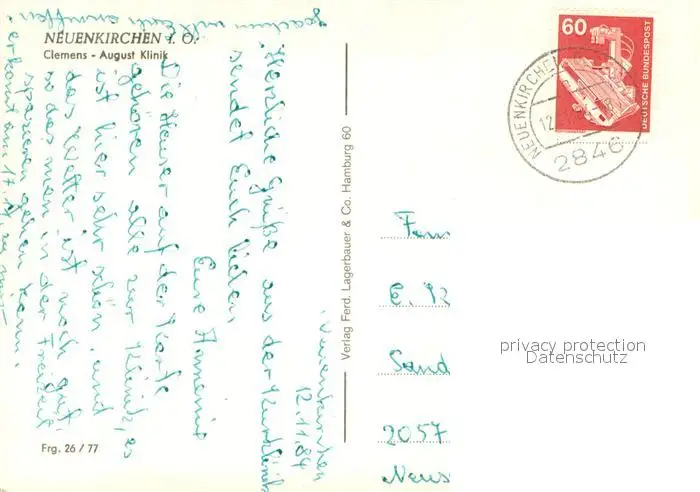 NEUENKIRCHEN i. O.
Clemens - August Klinik
Neuenkirchen
12.11.84
Herzliche Grüße aus der Kurklinik
sendet Euch lieben
Eure Annemie
Die Häuser auf der Karte
gehören alle zur Klinik, es
ist hier sehr schön, und
das Wetter ist noch gut,
so das man in der Freizeit
spazieren gehen kann.
Frg. 26 / 77
Verlag Ferd. Lagerbauer & Co. Hamburg 60
60
DEUTSCHE BUNDESPOST
NEUENKIRCHEN
12
2846
Fam
E. K
Sand
2057
privacy protection
Datenschutz